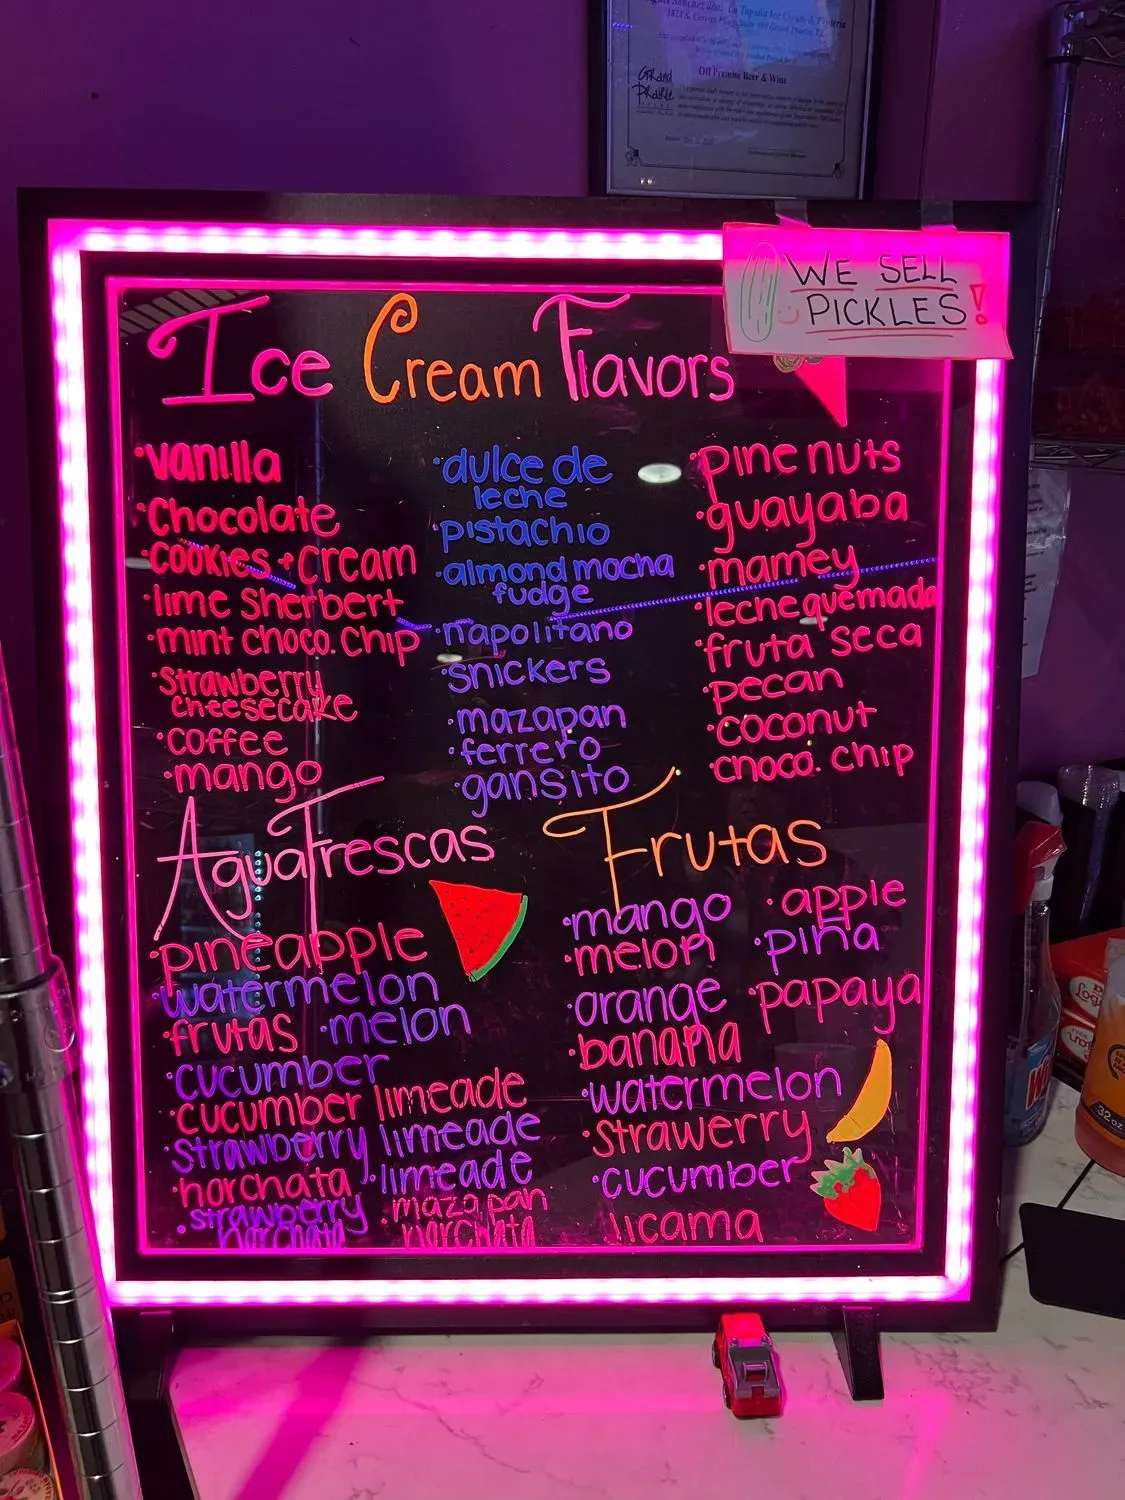 La Tapatia Ice Cream &
Off Premise Beer & Wine
Grand
Prairie
WE SELL
PICKLES!
Ice Cream Flavors
·vanilla
·Chocolate
·cookies + cream
·lime Sherbert
·mint choco. chip
·Strawberry
cheesecake
·coffee
·mango
·dulce de
leche
·pistachio
·almond mocha
fudge
·napolitano
·snickers
·mazapan
·ferrero
·gansito
·pine nuts
·guayaba
·mamey
·leche quemada
·fruta seca
·pecan
·coconut
·choco. chip
Agua Frescas
·pineapple
·watermelon
·frutas ·melon
·cucumber
·cucumber limeade
·strawberry limeade
·horchata ·limeade
·strawberry
horchata
·mazapan
horchata
Frutas
·mango ·apple
·melon ·piña
·orange ·papaya
·banana
·watermelon
·Strawerry
·cucumber
Jicama
32 oz